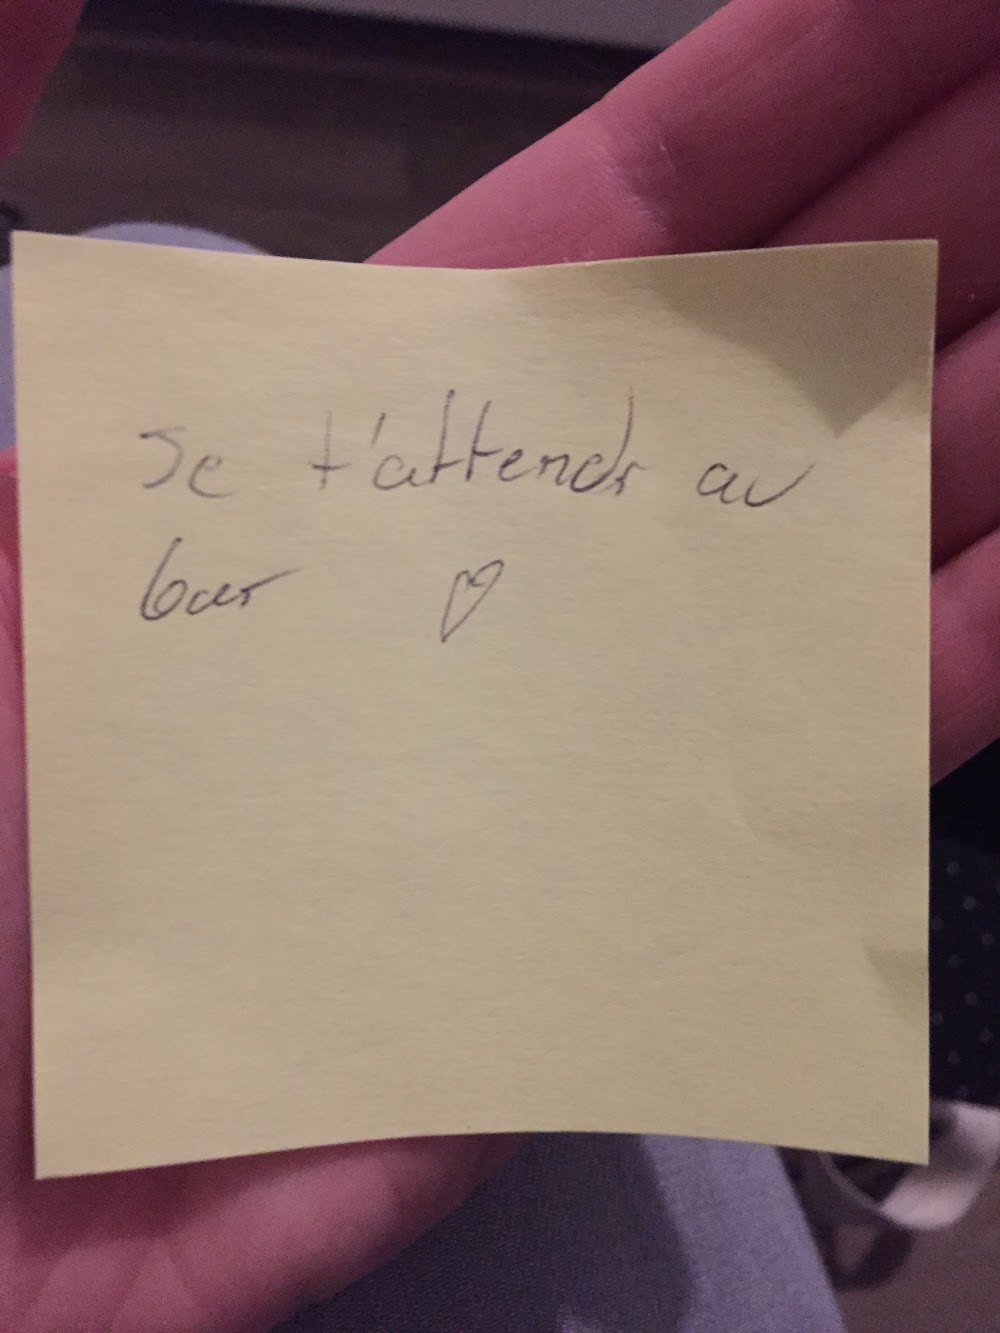 Je t'attends au
bar ♡